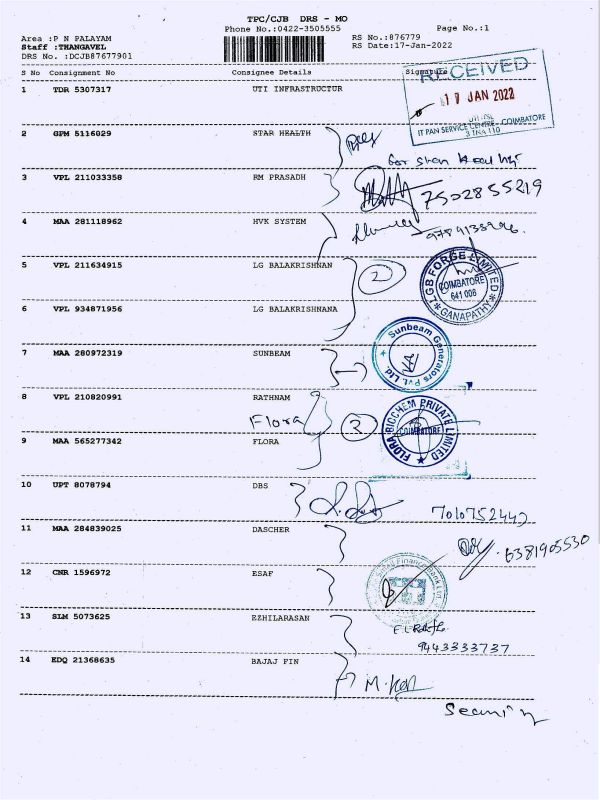 TPC/CJB DRS - MO
Phone No.:0422-3505555
Page No.:1
Area :P N PALAYAM
RS No.:876779
Staff :THANGAVEL
RS Date:17-Jan-2022
DRS No. :DCJB87677901
S No Consignment No Consignee Details Signature
RECEIVED
17 JAN 2022
IT PAN SERVICE CENTRE - COIMBATORE
1 TDR 5307317 UTI INFRASTRUCTUR
2 GPM 5116029 STAR HEALTH
3 VPL 211033358 RM PRASADH
7502855219
4 MAA 281118962 HVK SYSTEM
5 VPL 211634915 LG BALAKRISHNAN
2
LGB FORGE LIMITED
COIMBATORE
641 006
* GANAPATHY *
6 VPL 934871956 LG BALAKRISHNANA
7 MAA 280972319 SUNBEAM
Sunbeam Generators Pvt. Ltd.
8 VPL 210820991 RATHNAM
Flora
FLORA BIOCHEM PRIVATE LIMITED
COIMBATORE
9 MAA 565277342 FLORA
10 UPT 8078794 DBS
11 MAA 284839025 DASCHER
6381905530
12 CNR 1596972 ESAF
Small Finance Bank Ltd
13 SLM 5073625 EZHILARASAN
9443333737
14 EDQ 21368635 BAJAJ FIN